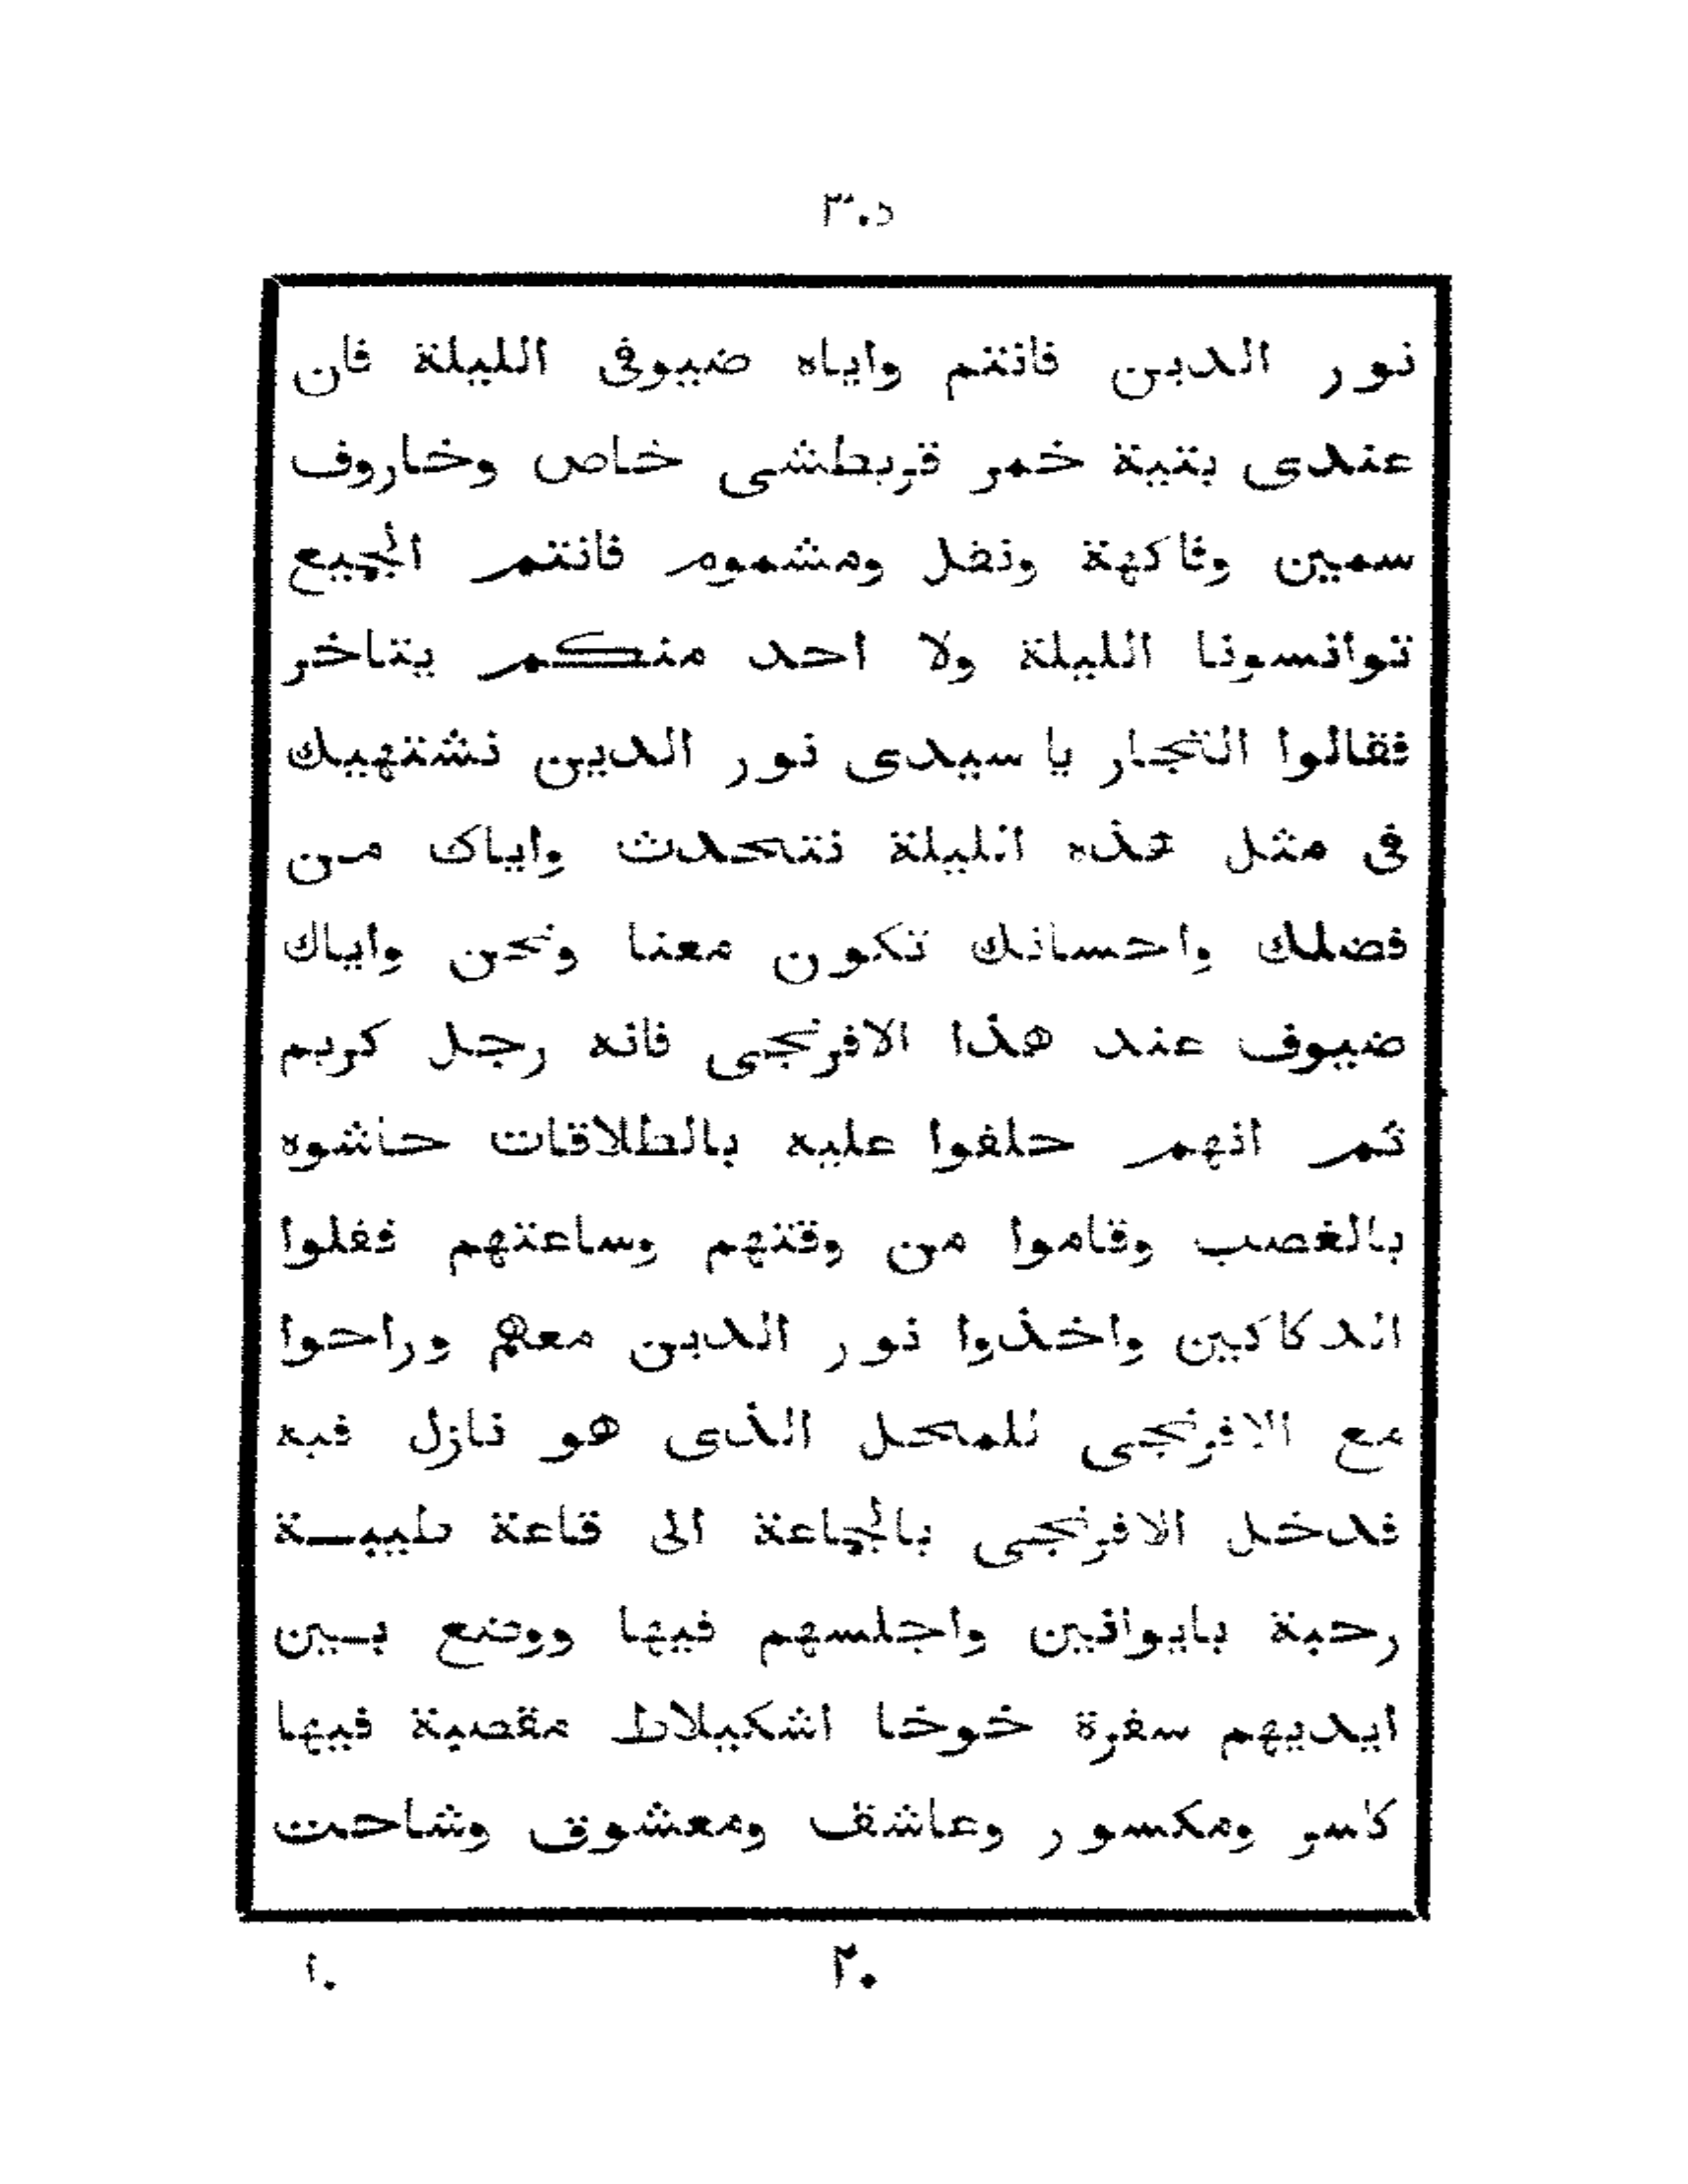 ٣٠٥
نور الدين فانتم واياه ضيوفى الليلة فان
عندى بتية خمر قريطشى خاص وخاروف
سمين وفاكهة ونقل ومشموم فانتم الجميع
توانسونا الليلة ولا احد منكم يتاخر
فقالوا التجار يا سيدى نور الدين نشتهيك
فى مثل هذه الليلة نتحدث واياك من
فضلك واحسانك تكون معنا ونحن واياك
ضيوف عند هذا الافرنجى فانه رجل كريم
ثم انهم حلفوا عليه بالطلاقات حاشوه
بالغصب وقاموا من وقتهم وساعتهم قفلوا
الدكاكين واخذوا نور الدين معهم وراحوا
مع الافرنجى للمحل الذى هو نازل فيه
فدخل الافرنجى بالجماعة الى قاعة طيبة
رحبة بايوانين واجلسهم فيها ووضع بين
ايديهم سفرة خوخا اشكيلاط مقصبة فيها
كاسر ومكسور وعاشق ومعشوق وشاحت
٢٠
١٠